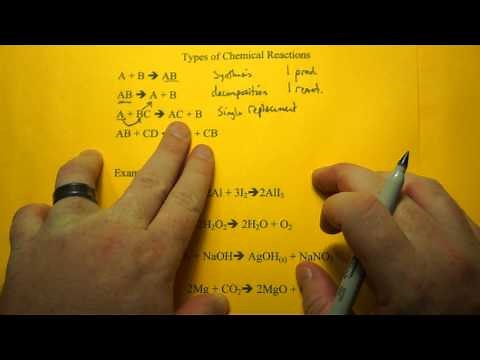 Types of Chemical Reactions
A + B → AB synthesis 1 prod.
AB → A + B decomposition 1 react.
A + BC → AC + B single replacement
AB + CD + CB
Exam
2Al + 3I₂→2AlI₃
2H₂O₂→ 2H₂O + O₂
+ NaOH→ AgOH(s) + NaNO₃
2Mg + CO₂→ 2MgO +